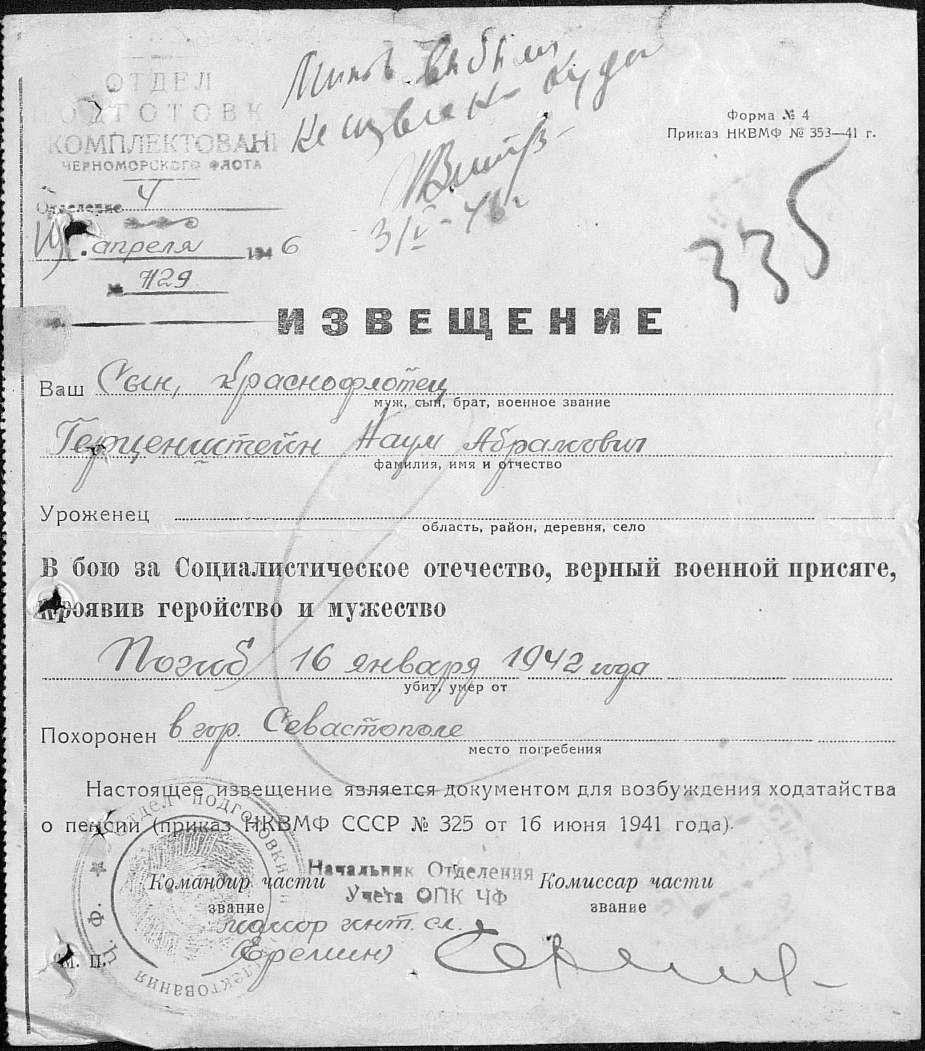 ОТДЕЛ
ПОДГОТОВК
КОМПЛЕКТОВАН
ЧЕРНОМОРСКОГО ФЛОТА
Отделение 4
апреля 1946
№ 729
выбыл
неизвестно куда
3/V-46 г.
Форма № 4
Приказ НКВМФ № 353—41 г.
335
ИЗВЕЩЕНИЕ
Ваш Сын, Краснофлотец
муж, сын, брат, военное звание
Герценштейн Наум Абрамович
фамилия, имя и отчество
Уроженец
область, район, деревня, село
В бою за Социалистическое отечество, верный военной присяге,
проявив геройство и мужество
Погиб 16 января 1942 года
убит, умер от
Похоронен в гор. Севастополе
место погребения
Настоящее извещение является документом для возбуждения ходатайства
о пенсии (приказ НКВМФ СССР № 325 от 16 июня 1941 года).
Начальник Отделения
Командир части
Комиссар части
Учета ОПК ЧФ
звание
звание
майор инт. сл.
(Еремин)
М. П.
Отдел подготовки
комплектования
Ч. Ф.